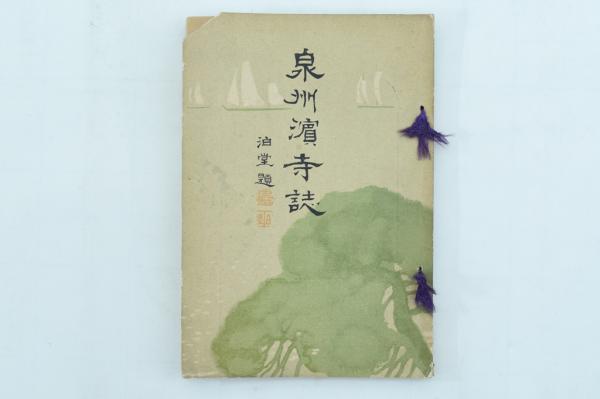 泉州濱寺誌
泊堂題